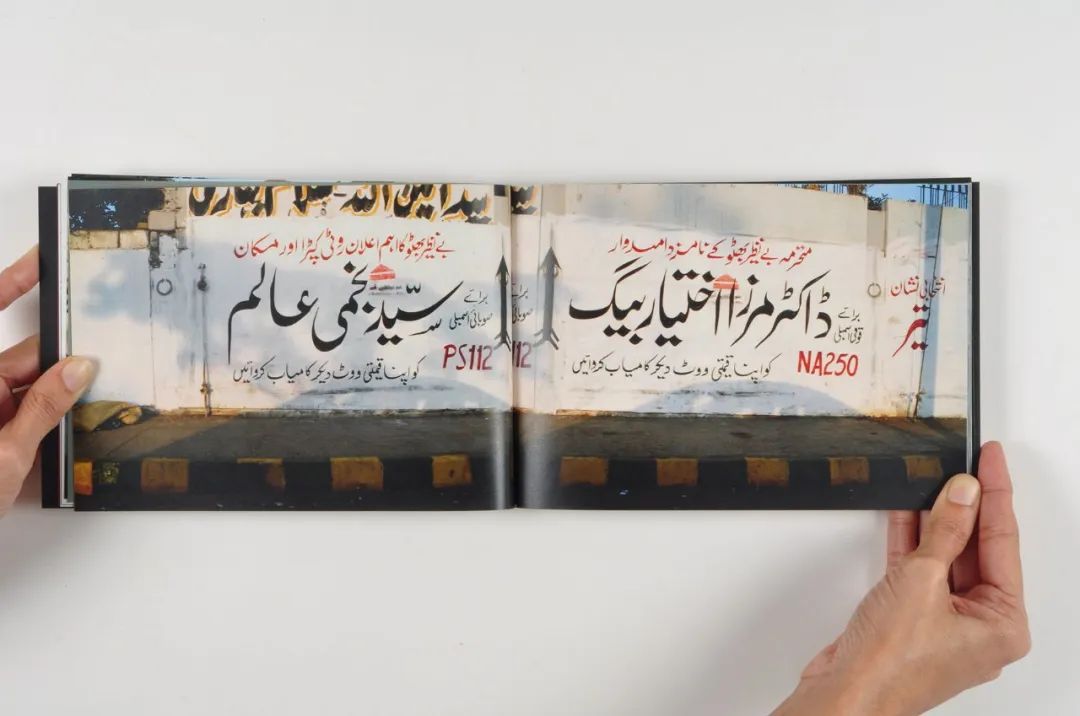 انتخابی نشان
تیر
محترمہ بے نظیر بھٹو کے نامزد امیدوار
برائے
قومی اسمبلی
ڈاکٹر مرزا اختیار بیگ
NA250
کو اپنا قیمتی ووٹ دیکر کامیاب کروائیں
112
بے نظیر بھٹو کا اہم اعلان روٹی کپڑا اور مکان
برائے
صوبائی اسمبلی
سیّد نجمی عالم
PS112
کو اپنا قیمتی ووٹ دیکر کامیاب کروائیں